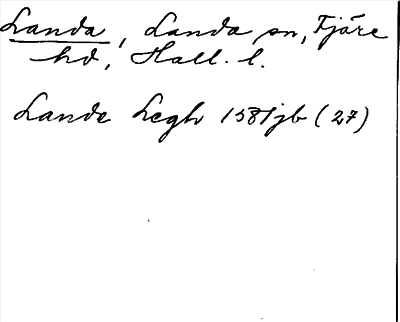 Landa, Landa sn, Fjäre
hd, Hall. l.
Lande Legh 1581 jb (27)